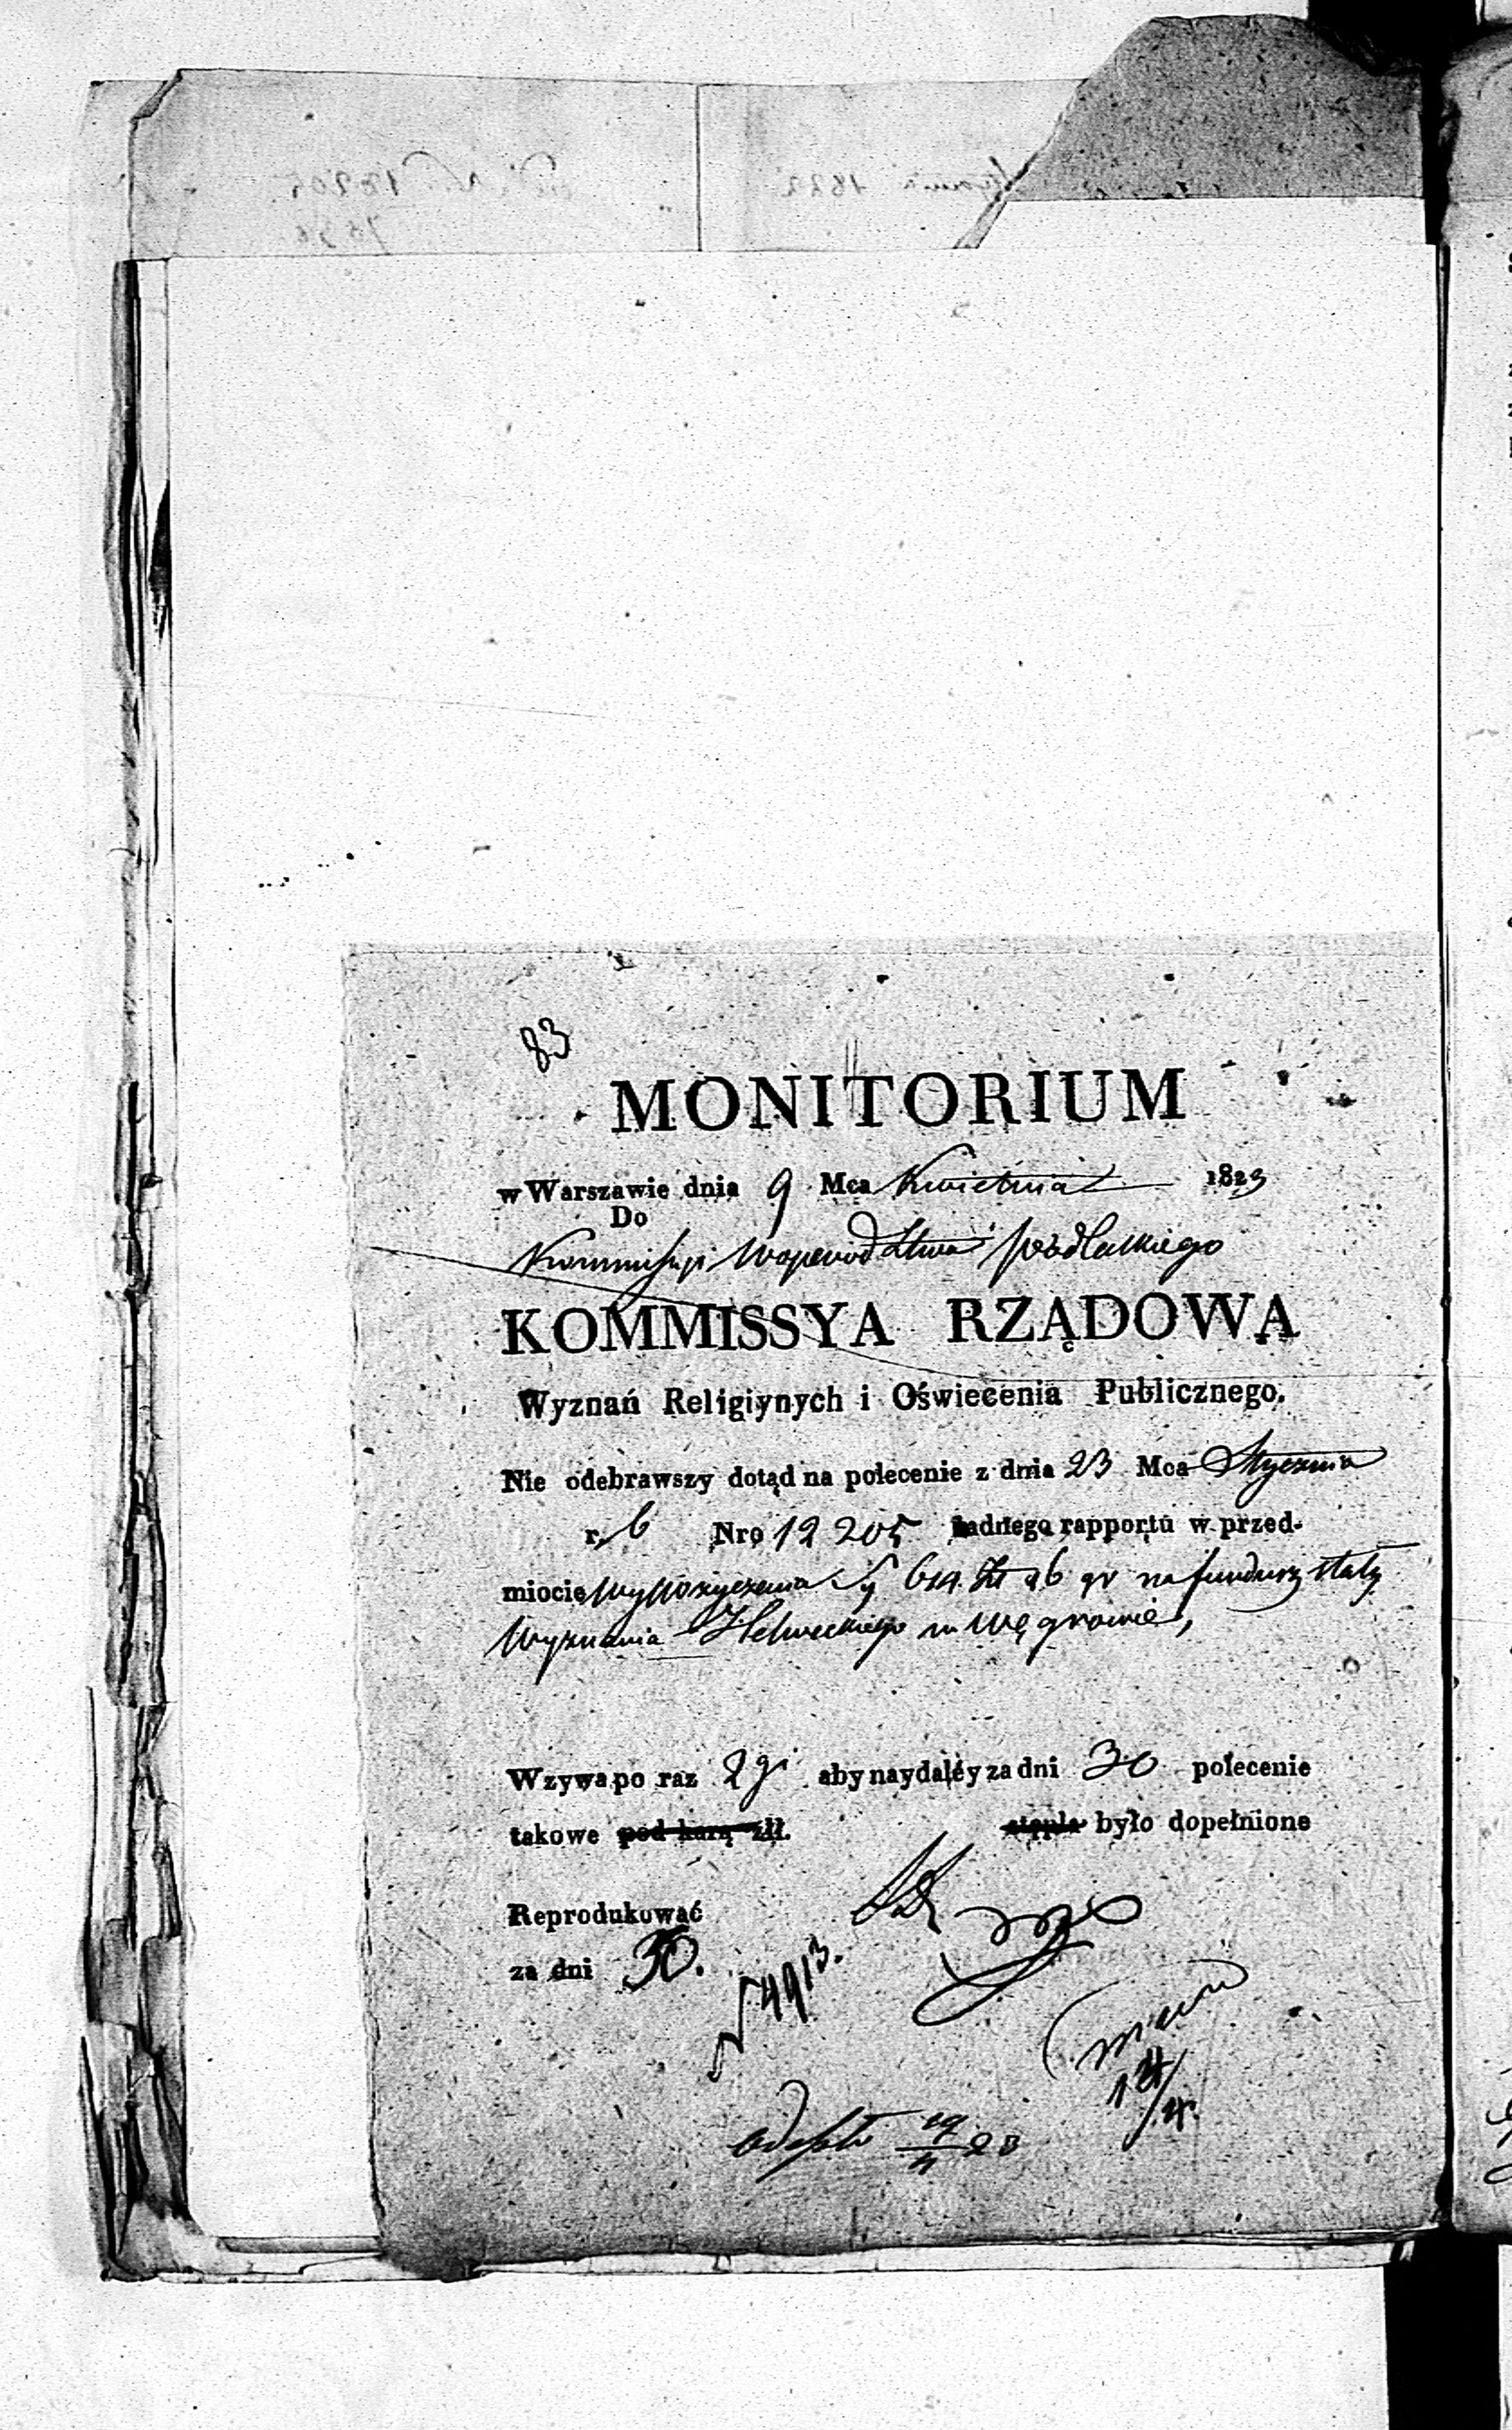 83
MONITORIUM
w Warszawie dnia 9 Mca Kwietnia 1823
Do
Kommissyi Wojewodztwa Podlaskiego
KOMMISSYA RZĄDOWA
Wyznań Religiynych i Oświecenia Publicznego.
Nie odebrawszy dotąd na polecenie z dnia 23 Mca Stycznia
r, b Nro 12205 żadnego rapportu w przed-
miocie wypożyczenia Sy 614 Zł gr na fundusz stały
Wyznania Helweckiego w Węgrowie,
Wzywa po raz 2gi aby naydaléy za dni 30 polecenie
takowe pod karą złł. stępla było dopełnione
Reprodukować
za dni 30.
4913.
odeszło 19/4 23